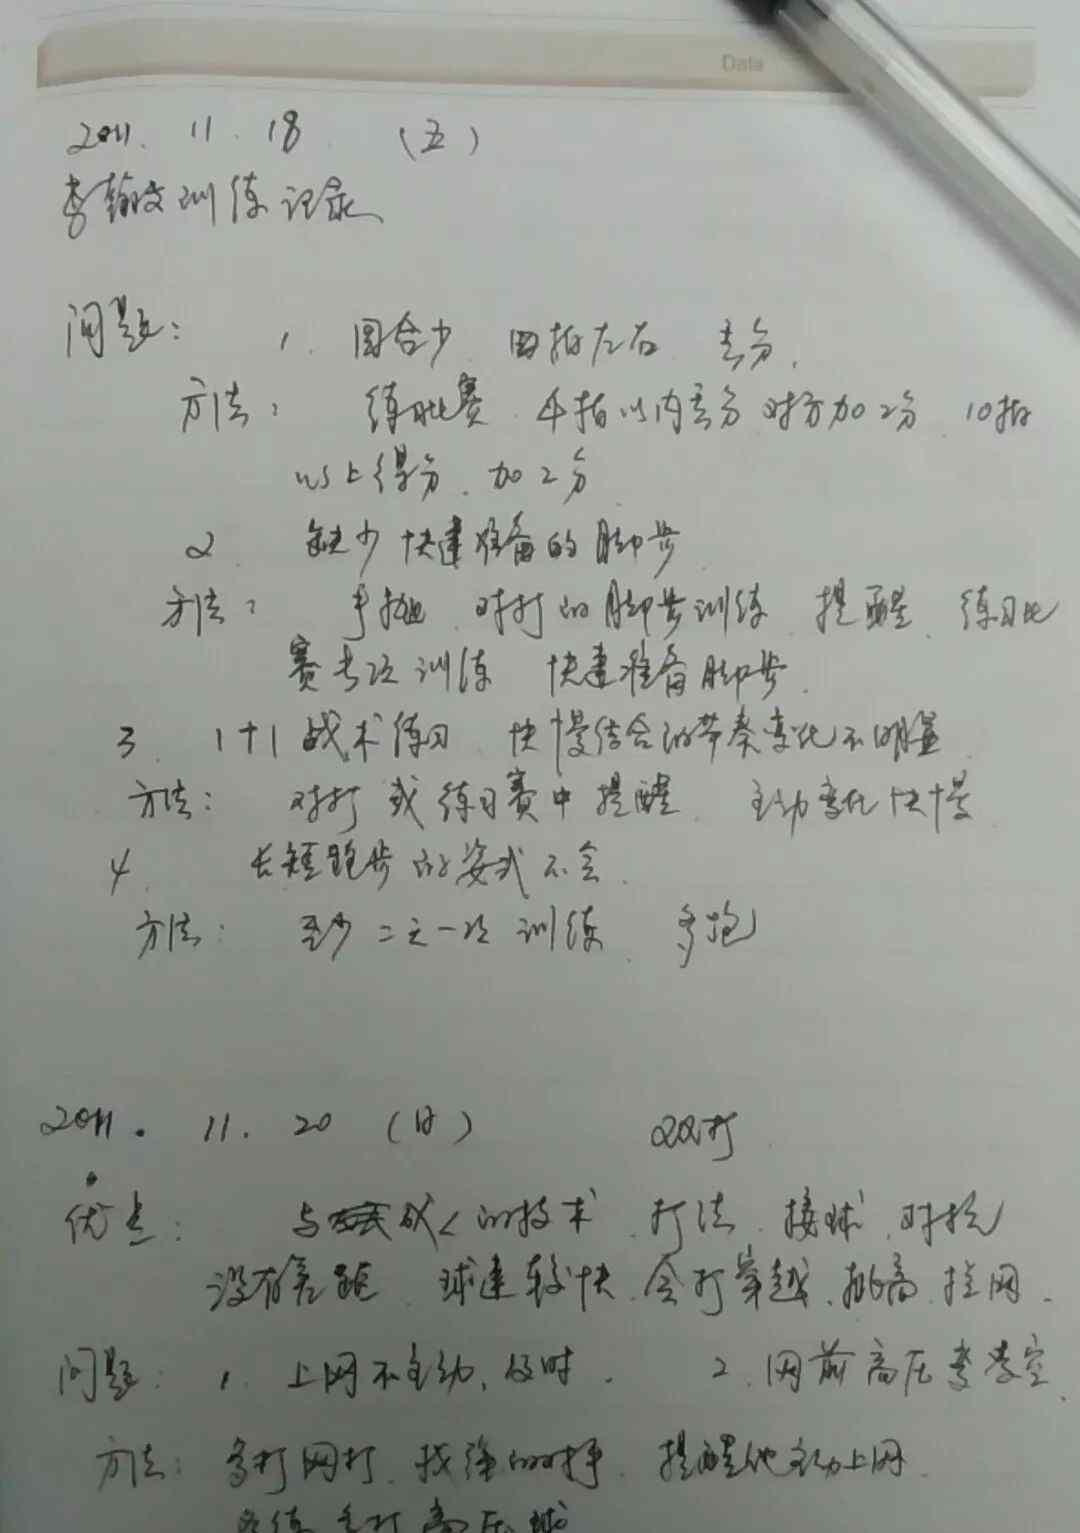 Data
2011. 11. 18 （五）
李翰文训练记录
问题： 1. 回合少 四拍左右 丢分.
方法： 练比赛 4拍以内丢分 对方加2分 10拍
以上得分. 加2分
2 缺少快速准备的脚步
方法： 手抛 对打的脚步训练 提醒 练习比
赛专项训练 快速准备脚步.
3. 1+1战术练习 快慢结合的节奏变化不明显
方法： 对打或练习赛中提醒 主动变化快慢
4. 长短跑步的姿式不会.
方法： 至少二天一次训练. 多跑
2011. 11. 20 （日） 双打
优点： 与成人的技术. 打法. 接球. 对抗
没有差距. 球速较快. 会打穿越. 挑高. 拦网.
问题： 1. 上网不主动、及时. 2. 网前高压
方法： 多打双打. 找强的对手. 提醒他主动上网.
多练多打高压球